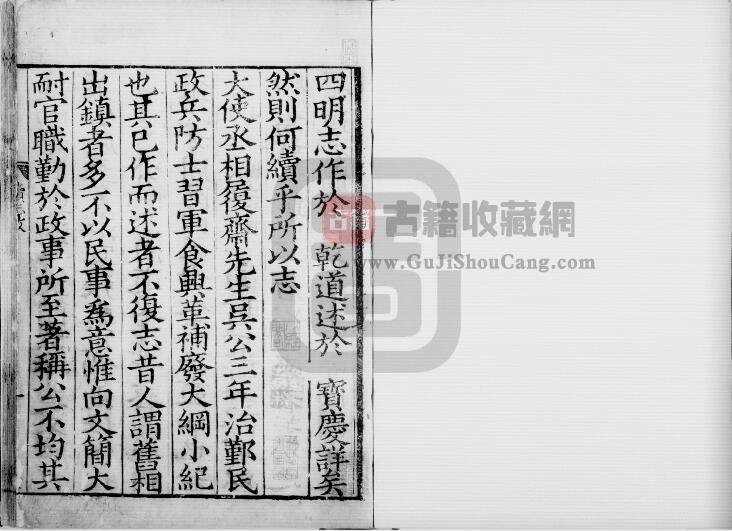 四明志作於 乾道述於 寶慶詳矣
然則何續乎所以志
大使丞相履齋先生吳公三年治鄞民
政兵防士習軍食興革補廢大綱小紀
也其已作而述者不復志昔人謂舊相
出鎮者多不以民事爲意惟向文簡大
耐官職勤於政事所至著稱公不均其
古籍收藏網
www.GuJiShouCang.com
古籍